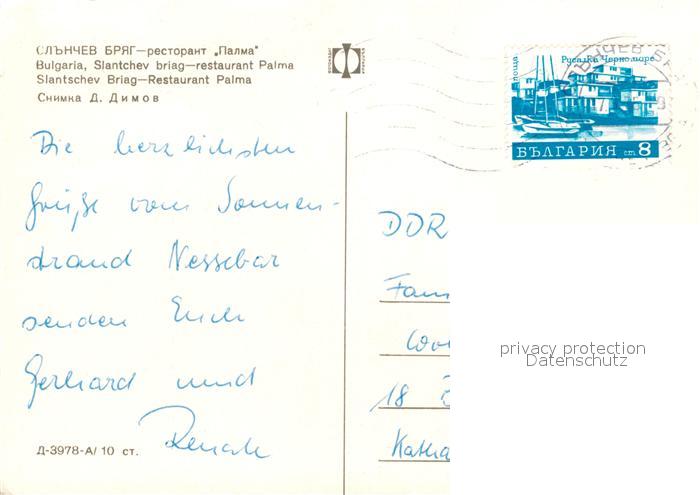 СЛЪНЧЕВ БРЯГ—ресторант „Палма"
Bulgaria, Slantchev briag—restaurant Palma
Slantschev Briag—Restaurant Palma
Снимка Д. Димов
Русалка Черноморе
БЪЛГАРИЯ ст 8
Die herzlichsten
Grüße vom Sonnen-
strand Nessebar
senden Euch
Gerhard und
Renate
DDR
Fam
18
Katha
privacy protection
Datenschutz
Д-3978-А/ 10 ст.